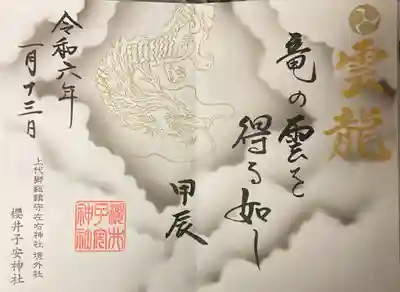 雲龍
竜の雲を
得る如し
甲辰
令和六年
一月十三日
上代郷総鎮守左右神社 境外社
櫻井子安神社
櫻井
子安
神社